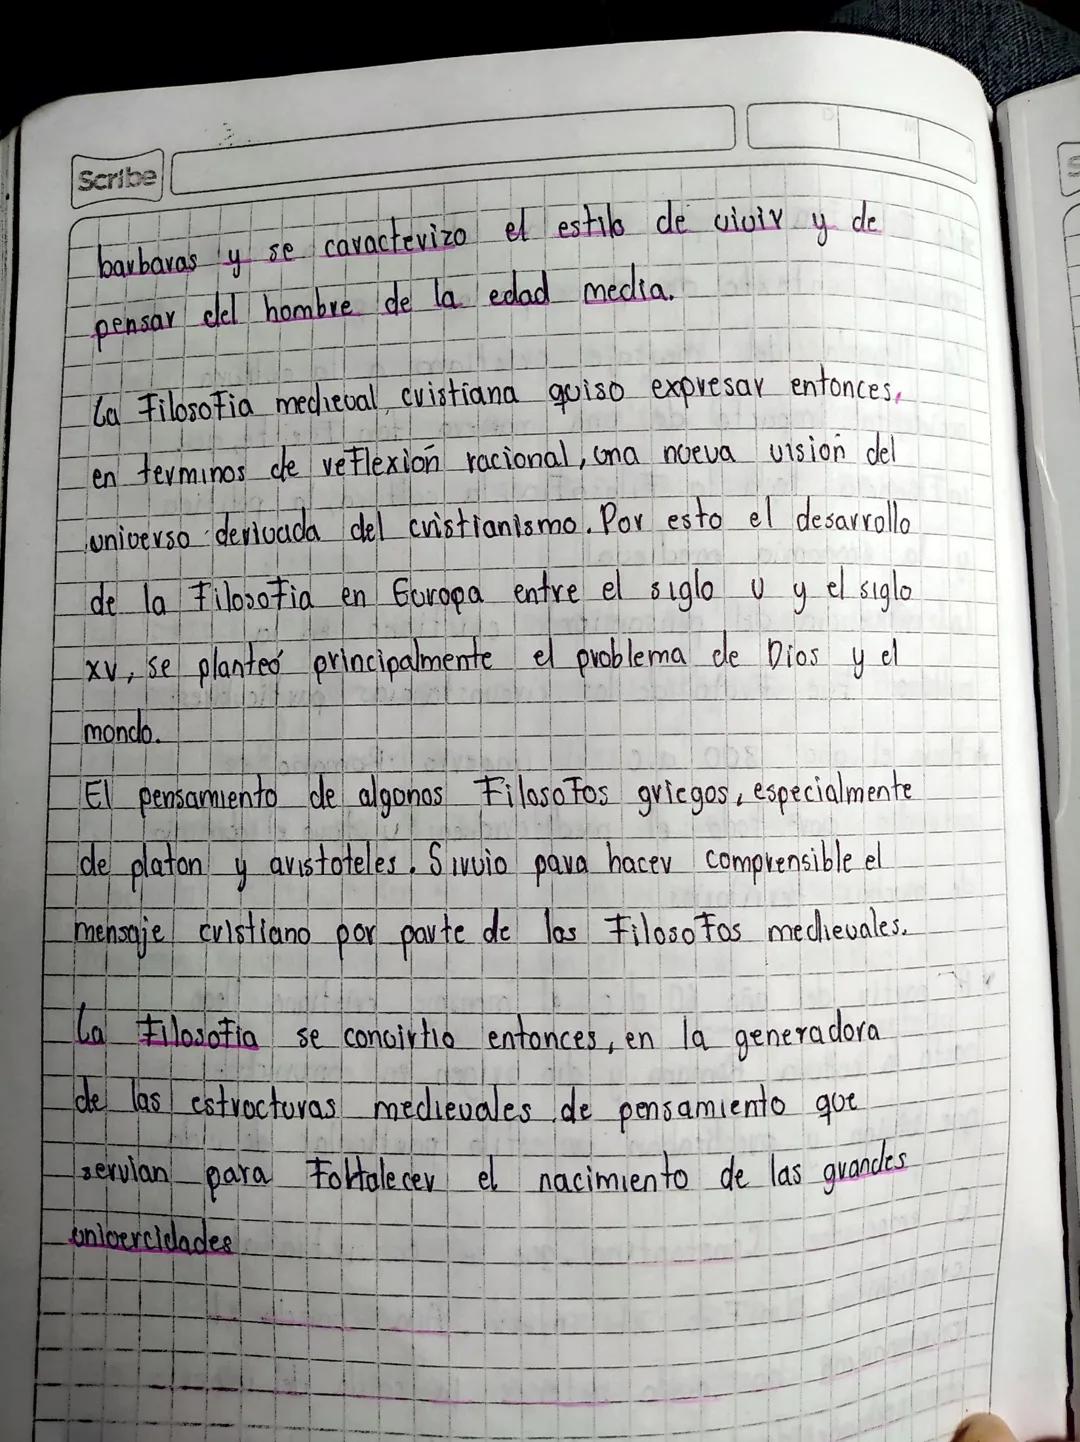 Scribe
barbaras y se caracterizo el estilo de vivir y de
pensar del hombre de la edad media.
La Filosofia medieval cristiana quiso expresar entonces,
en terminos de reflexion racional, una nueva vision del
universo derivada del cristianismo. Por esto el desarrollo
de la Filosofia en Europa entre el siglo v y el siglo
xv, se planteó principalmente el problema de Dios y el
mundo.
El pensamiento de algunos Filosofos griegos, especialmente
de platon y aristoteles. Sirvio para hacer comprensible el
mensaje cristiano por parte de los Filosofos medievales.
La Filosofia se convirtio entonces, en la generadora
de las estructuras medievales de pensamiento que
servian para Fortalecer el nacimiento de las grandes
univercidades